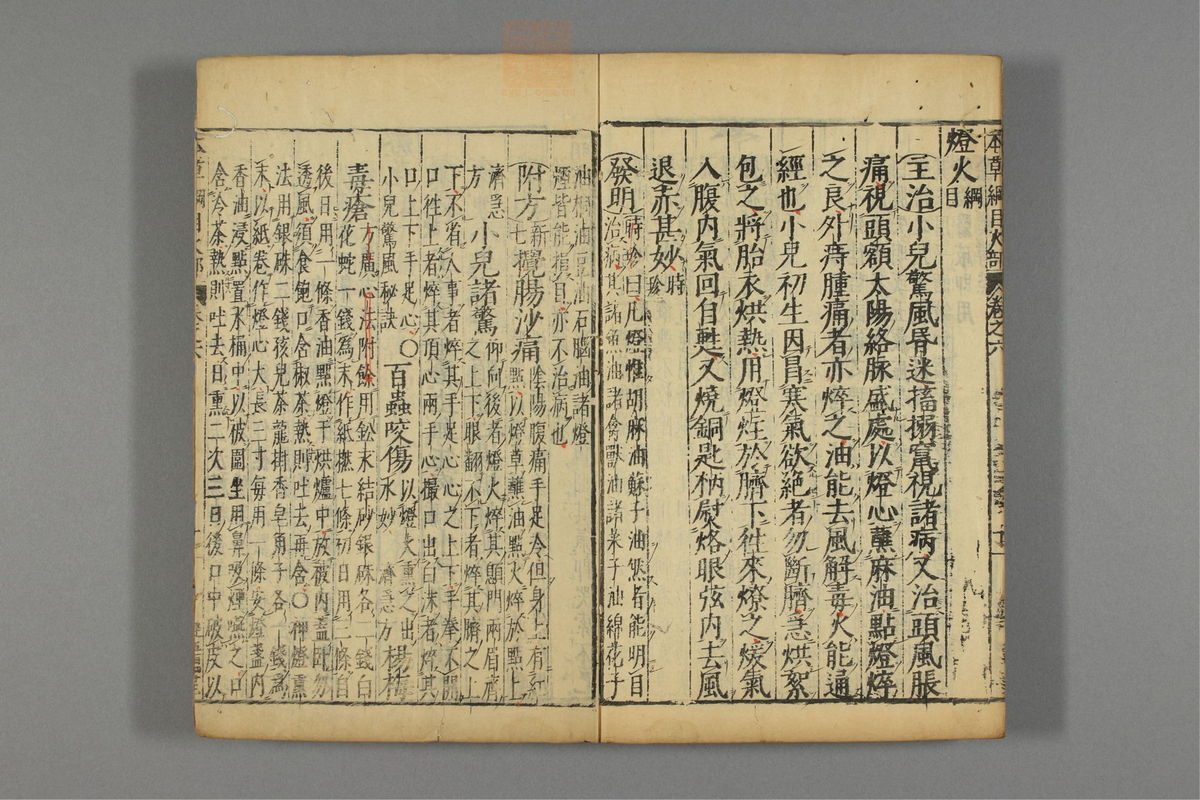 本草綱目火部 卷之六
燈火綱目
主治小兒驚風昏迷搐搦竄視諸病又治頭風脹
痛視頭額太陽絡脉盛處以燈心蘸麻油點燈焠
之良外痔腫痛者亦焠之油能去風解毒火能通
經也小兒初生因冒寒氣欲絕者勿斷臍急烘絮
包之將胎衣烘熱用燈炷於臍下往來燎之煖氣
入腹內氣回自甦又燒銅匙柄熨烙眼弦內去風
退赤甚妙時珍
發明時珍曰凡燈惟胡麻油蘇子油然者能明目
治病其諸魚油諸禽獸油諸菜子油綿花子
油桐油豆油石腦油諸燈
煙皆能損目亦不治病也
附方新七攪腸沙痛陰陽腹痛手足冷但身上有
點以燈草蘸油點火焠於點上
濟急方小兒諸驚仰向後者燈火焠其顖門兩眉齊
之上下眼翻不下者焠其臍之上
下不省人事者焠其手足心心之上下手拳不開
口往上者焠其頂心兩手心撮口出白沫者焠其
口上下手足心〇百蟲咬傷以燈火熏之出
小兒驚風秘訣
水妙濟急方楊梅
毒瘡方廣心法附餘用鉛末結砂銀硃各一錢白
花蛇一錢為末作紙撚七條初日用三條自
後日用一條香油點燈于烘爐中放被內蓋臥勿
透風須食飽口含椒茶熱則吐去再含〇神燈熏
法用銀硃二錢孩兒茶龍掛香皂角子各一錢為
末以紙卷作燈心大長三寸每用一條安燈盞內
香油浸點置水桶中以被圍坐用鼻吸煙嚥之口
含冷茶熱則吐去日熏二次三日後口中破皮以